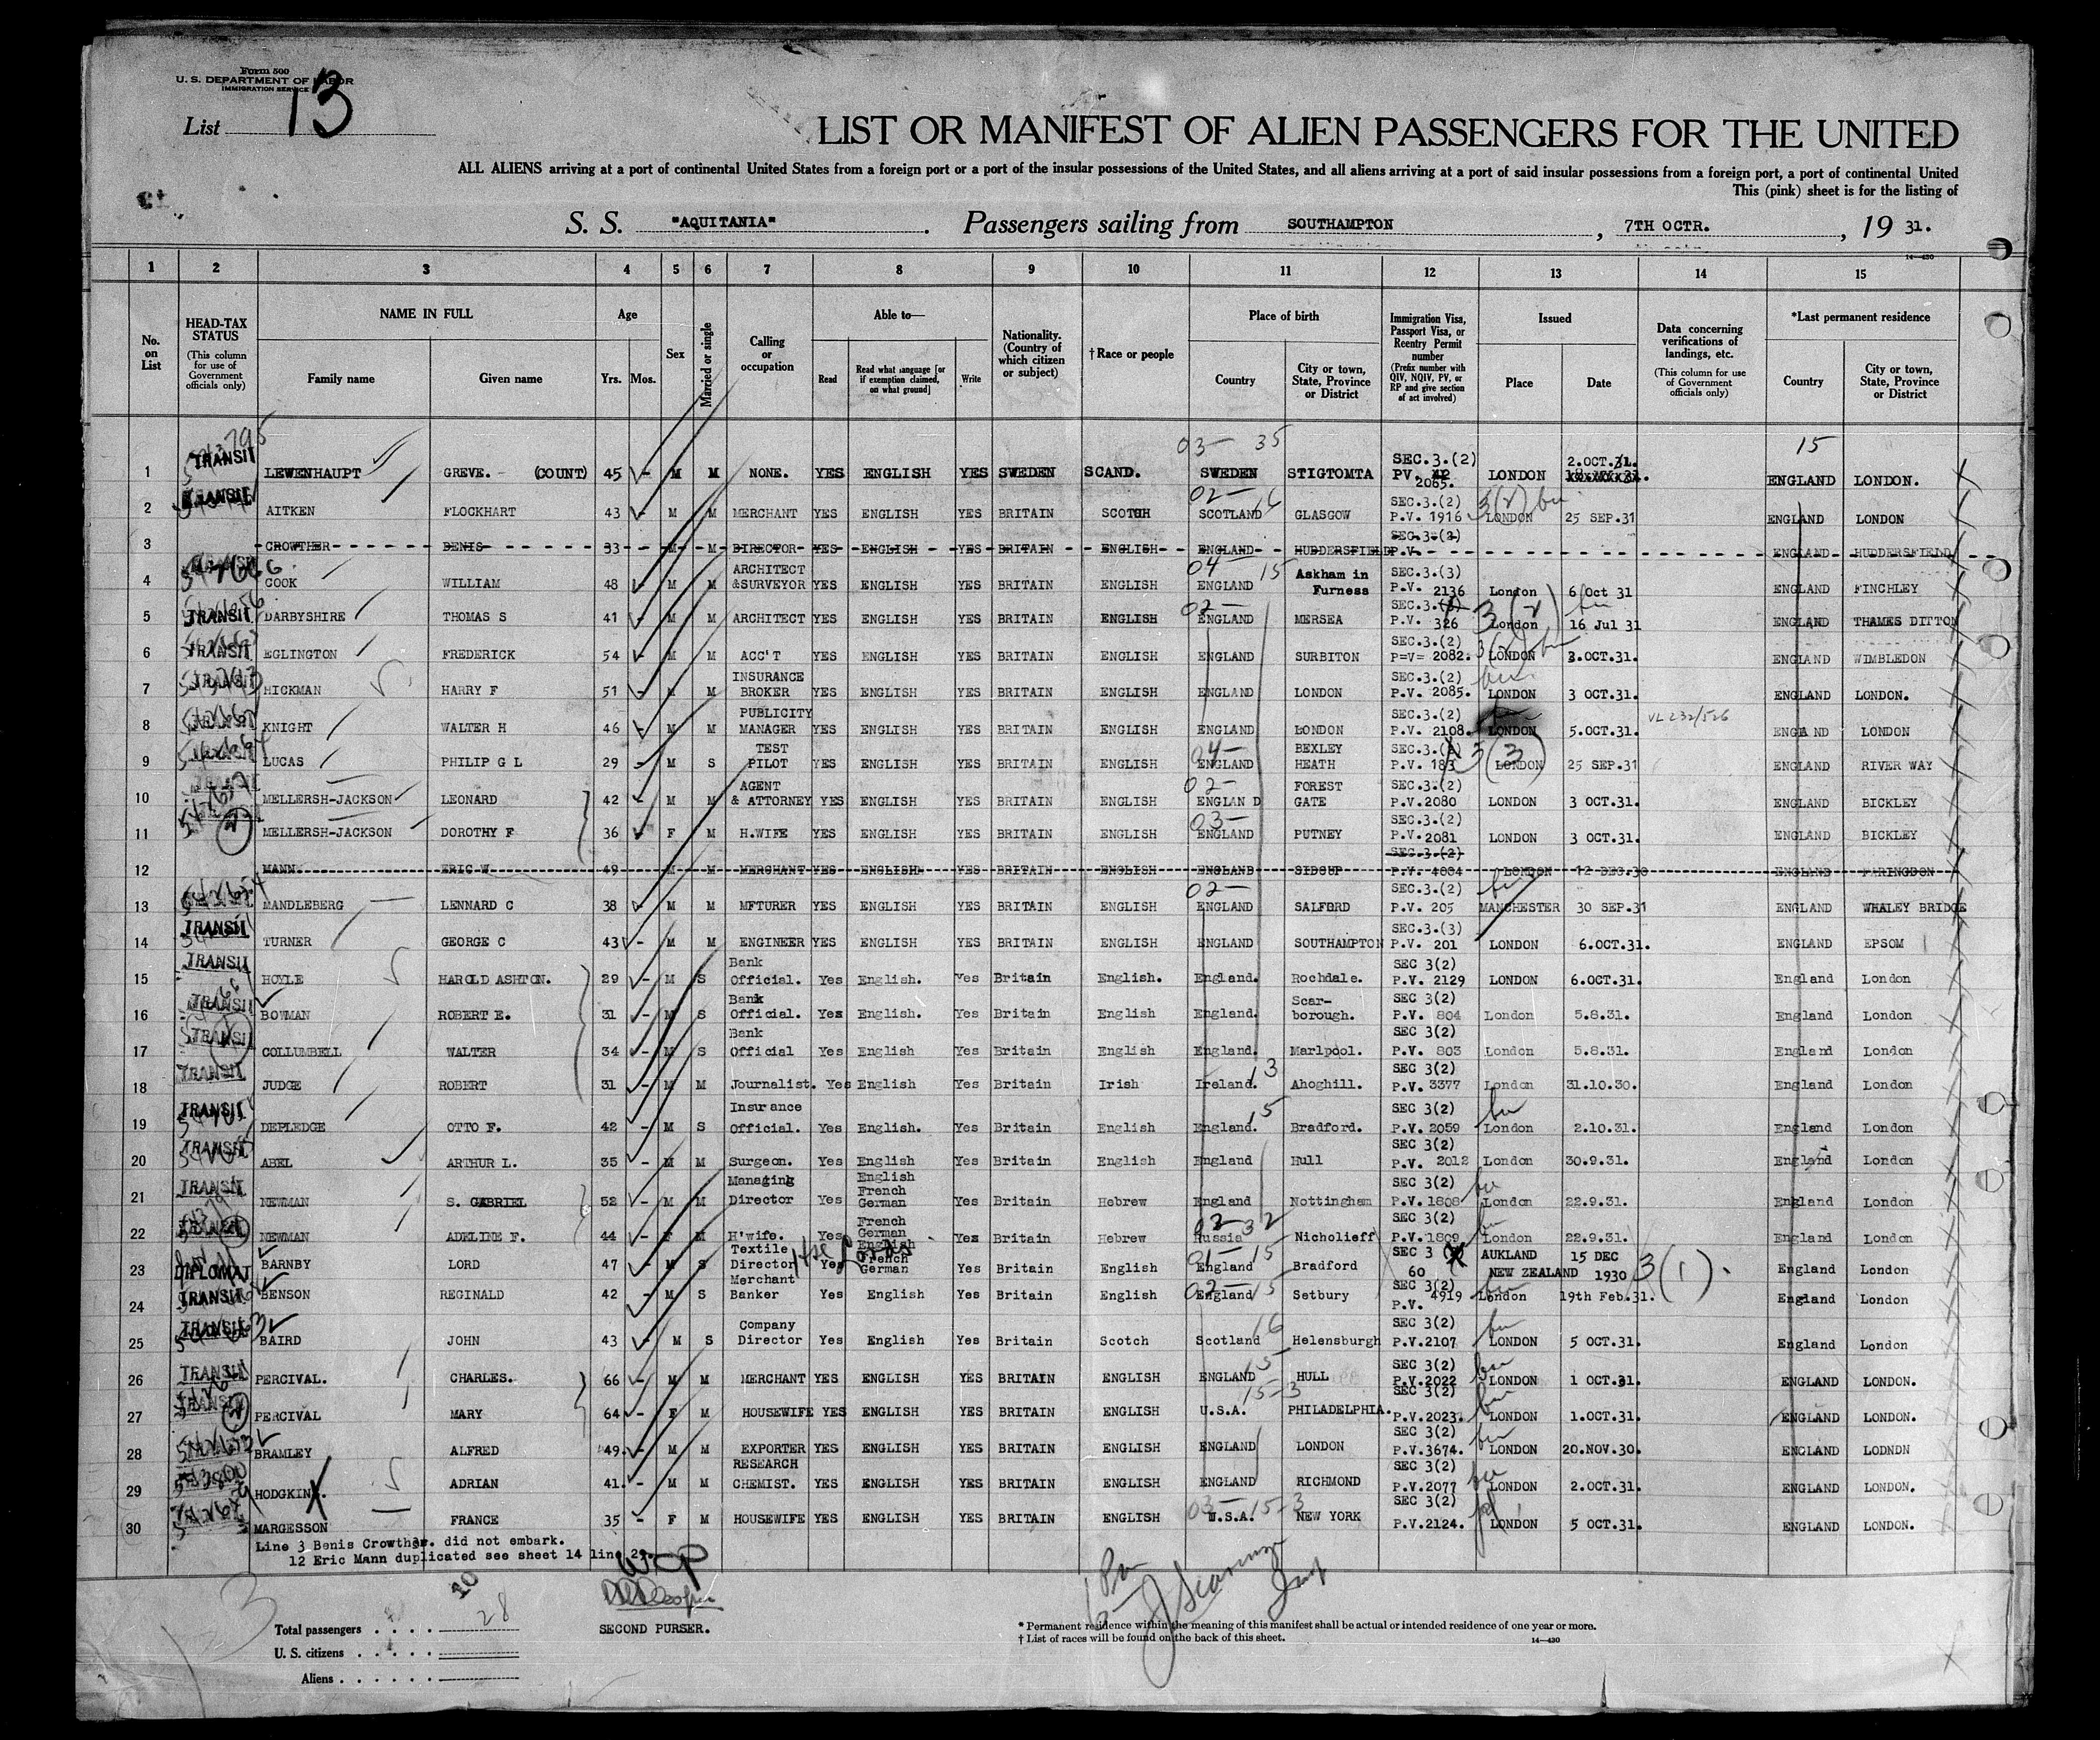 Form 500
U. S. DEPARTMENT OF LABOR
IMMIGRATION SERVICE
List 13
LIST OR MANIFEST OF ALIEN PASSENGERS FOR THE UNITED
ALL ALIENS arriving at a port of continental United States from a foreign port or a port of the insular possessions of the United States, and all aliens arriving at a port of said insular possessions from a foreign port, a port of continental United
This (pink) sheet is for the listing of
S. S. "AQUITANIA". Passengers sailing from SOUTHAMPTON, 7TH OCTR., 19 31.
14-430
1 2 3 4 5 6 7 8 9 10 11 12 13 14 15
No. on List
HEAD-TAX STATUS (This column for use of Government officials only)
NAME IN FULL Family name Given name
Age Yrs. Mos.
Sex
Married or single
Calling or occupation
Able to— Read Read what language [or if exemption claimed, on what ground] Write
Nationality. (Country of which citizen or subject)
†Race or people
Place of birth Country City or town, State, Province or District
Immigration Visa, Passport Visa, or Reentry Permit number (Prefix number with QIV, NQIV, PV, or RP and give section of act involved)
Issued Place Date
Data concerning verifications of landings, etc. (This column for use of Government officials only)
*Last permanent residence Country City or town, State, Province or District
03- 35 15
1 TRANSIT LEWENHAUPT GREVE. (COUNT) 45 - M M NONE. YES ENGLISH YES SWEDEN SCAND. SWEDEN STIGTOMTA SEC.3.(2) PV 2065. LONDON 2.OCT.31. ENGLAND LONDON.
2 TRANSIT AITKEN FLOCKHART 43 - M M MERCHANT YES ENGLISH YES BRITAIN SCOTCH 02- SCOTLAND 16 GLASGOW SEC.3.(2) P.V. 1916 3(2) LONDON 25 SEP.31 ENGLAND LONDON
3 CROWTHER DENIS 33 M M DIRECTOR YES ENGLISH YES BRITAIN ENGLISH ENGLAND HUDDERSFIELD SEC.3.(2) P.V. ENGLAND HUDDERSFIELD
4 COOK WILLIAM 48 - M M ARCHITECT &SURVEYOR YES ENGLISH YES BRITAIN ENGLISH 04- ENGLAND 15 Askham in Furness SEC.3.(3) P.V. 2136 London 6 Oct 31 ENGLAND FINCHLEY
5 TRANSIT DARBYSHIRE THOMAS S 41 - M M ARCHITECT YES ENGLISH YES BRITAIN ENGLISH 02- ENGLAND MERSEA SEC.3. P.V. 326 3(2) London 16 Jul 31 ENGLAND THAMES DITTON
6 TRANSIT EGLINGTON FREDERICK 54 - M M ACC'T YES ENGLISH YES BRITAIN ENGLISH ENGLAND SURBITON SEC.3.(2) P=V= 2082. 3(2) LONDON 3.OCT.31. ENGLAND WIMBLEDON
7 TRANSIT HICKMAN HARRY F 51 - M M INSURANCE BROKER YES ENGLISH YES BRITAIN ENGLISH ENGLAND LONDON SEC.3.(2) P.V. 2085. LONDON 3 OCT.31. ENGLAND LONDON.
8 KNIGHT WALTER H 46 - M M PUBLICITY MANAGER YES ENGLISH YES BRITAIN ENGLISH ENGLAND LONDON SEC.3.(2) P.V. 2108. LONDON 5.OCT.31. VL 232/526 ENGLA ND LONDON
9 LUCAS PHILIP G L 29 - M S TEST PILOT YES ENGLISH YES BRITAIN ENGLISH 04- ENGLAND BEXLEY HEATH SEC.3. P.V. 183 3(3) LONDON 25 SEP.31 ENGLAND RIVER WAY
10 MELLERSH-JACKSON LEONARD 42 - M M AGENT & ATTORNEY YES ENGLISH YES BRITAIN ENGLISH 02- ENGLAN D FOREST GATE SEC.3.(2) P.V.2080 LONDON 3 OCT.31. ENGLAND BICKLEY
11 MELLERSH-JACKSON DOROTHY F 36 F M H.WIFE YES ENGLISH YES BRITAIN ENGLISH 03- ENGLAND PUTNEY SEC.3.(2) P.V.2081 LONDON 3 OCT.31. ENGLAND BICKLEY
12 MANN ERIC W 49 M M MERCHANT YES ENGLISH YES BRITAIN ENGLISH ENGLAND SIDCUP SEC.3.(2) P.V. 4004 LONDON 12 DEC.30 ENGLAND FARINGDON
13 MANDLEBERG LENNARD C 38 - M M MFTURER YES ENGLISH YES BRITAIN ENGLISH 02- ENGLAND SALFORD SEC.3.(2) P.V. 205 MANCHESTER 30 SEP.31 ENGLAND WHALEY BRIDGE
14 TRANSIT TURNER GEORGE C 43 - M M ENGINEER YES ENGLISH YES BRITAIN ENGLISH ENGLAND SOUTHAMPTON SEC.3.(3) P.V. 201 LONDON 6.OCT.31. ENGLAND EPSOM
15 TRANSIT HOYLE HAROLD ASHTON. 29 - M S Bank Official. Yes English. Yes Britain English. England. Rochdale. SEC 3(2) P.V. 2129 LONDON 6.OCT.31. England London
16 TRANSIT BOWMAN ROBERT E. 31 - M S Bank Official. Yes English. Yes Britain English England. Scar- borough. SEC 3(2) P.V. 804 London 5.8.31. England London
17 TRANSIT COLLUMBELL WALTER 34 - M S Bank Official Yes English Yes Britain English England. Marlpool. SEC 3(2) P.V. 803 London 5.8.31. England London
18 TRANSIT JUDGE ROBERT 31 - M M Journalist. Yes English Yes Britain Irish Ireland. 13 Ahoghill. SEC 3(2) P.V. 3377 London 31.10.30. England London
19 TRANSIT DEPLEDGE OTTO F. 42 - M S Insurance Official. Yes English. Yes Britain English England. 15 Bradford. SEC 3(2) P.V. 2059 London 2.10.31. England London
20 TRANSIT ABEL ARTHUR L. 35 - M M Surgeon. Yes English Yes Britain English England Hull SEC 3(2) P.V. 2012 London 30.9.31. England London
21 TRANSIT NEWMAN S. GABRIEL 52 - M M Managing Director Yes English French German Yes Britain Hebrew England Nottingham SEC 3(2) P.V.1808 London 22.9.31. England London
22 NEWMAN ADELINE F. 44 - F M H'wife. Yes French German English Yes Britain Hebrew 02-32 Russia Nicholieff SEC 3(2) P.V.1809 London 22.9.31. England London
23 DIPLOMAT BARNBY LORD 47 - M S Textile Director Yes French German Yes Britain English 01-15 England Bradford SEC 3 60 AUKLAND NEW ZEALAND 15 DEC 1930 3(1). England London
24 TRANSIT BENSON REGINALD 42 - M S Merchant Banker Yes English Yes Britain English 02-15 England Setbury SEC 3(2) P.V. 4919 London 19th Feb.31. England London
25 TRANSIT BAIRD JOHN 43 - M S Company Director Yes English Yes Britain Scotch Scotland 16 Helensburgh SEC 3(2) P.V.2107 LONDON 5 OCT.31. England London
26 TRANSIT PERCIVAL. CHARLES. 66 - M M MERCHANT YES ENGLISH YES BRITAIN ENGLISH ENGLAND 15 HULL SEC 3(2) P.V.2022 LONDON 1 OCT.31. ENGLAND LONDON.
27 TRANSIT PERCIVAL MARY 64 - F M HOUSEWIFE YES ENGLISH YES BRITAIN ENGLISH 15-3 U.S.A. PHILADELPHIA. SEC 3(2) P.V.2023. LONDON 1.OCT.31. ENGLAND LONDON.
28 BRAMLEY ALFRED 49. - M M EXPORTER YES ENGLISH YES BRITAIN ENGLISH ENGLAND LONDON SEC 3(2) P.V.3674. LONDON 20.NOV.30. ENGLAND LODNDN
29 HODGKINS. ADRIAN 41. - M M RESEARCH CHEMIST. YES ENGLISH YES BRITAIN ENGLISH ENGLAND RICHMOND SEC 3(2) P.V.2077 LONDON 2.OCT.31. ENGLAND LONDON.
30 MARGESSON FRANCE 35 - F M HOUSEWIFE YES ENGLISH YES BRITAIN ENGLISH 03-15-3 U.S.A. NEW YORK SEC 3(2) P.V.2124. LONDON 5 OCT.31. ENGLAND LONDON.
Line 3 Benis Crowther. did not embark.
12 Eric Mann duplicated see sheet 14 line 29.
10
Total passengers . . . . 28
U. S. citizens . . . . .
Aliens . . . . . .
SECOND PURSER.
* Permanent residence within the meaning of this manifest shall be actual or intended residence of one year or more.
† List of races will be found on the back of this sheet.
14-430